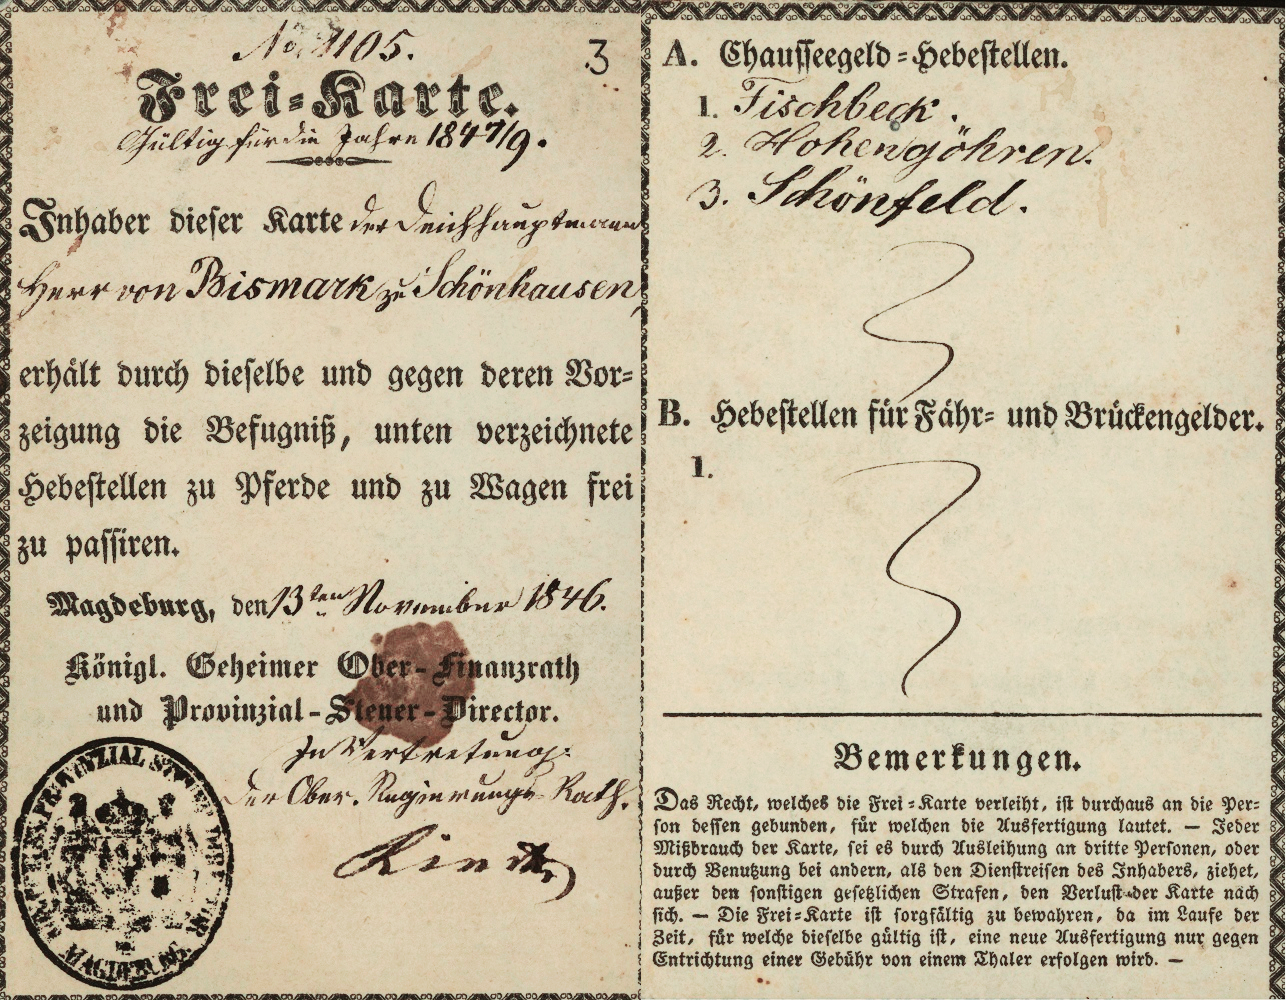 No. 1105.
3
Frei=Karte.
Gültig für die Jahre 1847/9.
Inhaber dieser Karte der Deichhauptmann
Herr von Bismark zu Schönhausen,
erhält durch dieselbe und gegen deren Vor=
zeigung die Befugniß, unten verzeichnete
Hebestellen zu Pferde und zu Wagen frei
zu passiren.
Magdeburg, den 13ten November 1846.
Königl. Geheimer Ober-Finanzrath
und Provinzial-Steuer-Director.
In Vertretung.
Der Ober. Regierungs-Rath.
PROVINZIAL STEUER DIREKTOR
MAGDEBURG
A. Chausseegeld=Hebestellen.
1. Fischbeck.
2. Hohengöhren.
3. Schönfeld.
B. Hebestellen für Fähr= und Brückengelder.
1.
Bemerkungen.
Das Recht, welches die Frei=Karte verleiht, ist durchaus an die Per=
son dessen gebunden, für welchen die Ausfertigung lautet. — Jeder
Mißbrauch der Karte, sei es durch Ausleihung an dritte Personen, oder
durch Benutzung bei andern, als den Dienstreisen des Inhabers, ziehet,
außer den sonstigen gesetzlichen Strafen, den Verlust der Karte nach
sich. — Die Frei=Karte ist sorgfältig zu bewahren, da im Laufe der
Zeit, für welche dieselbe gültig ist, eine neue Ausfertigung nur gegen
Entrichtung einer Gebühr von einem Thaler erfolgen wird. —